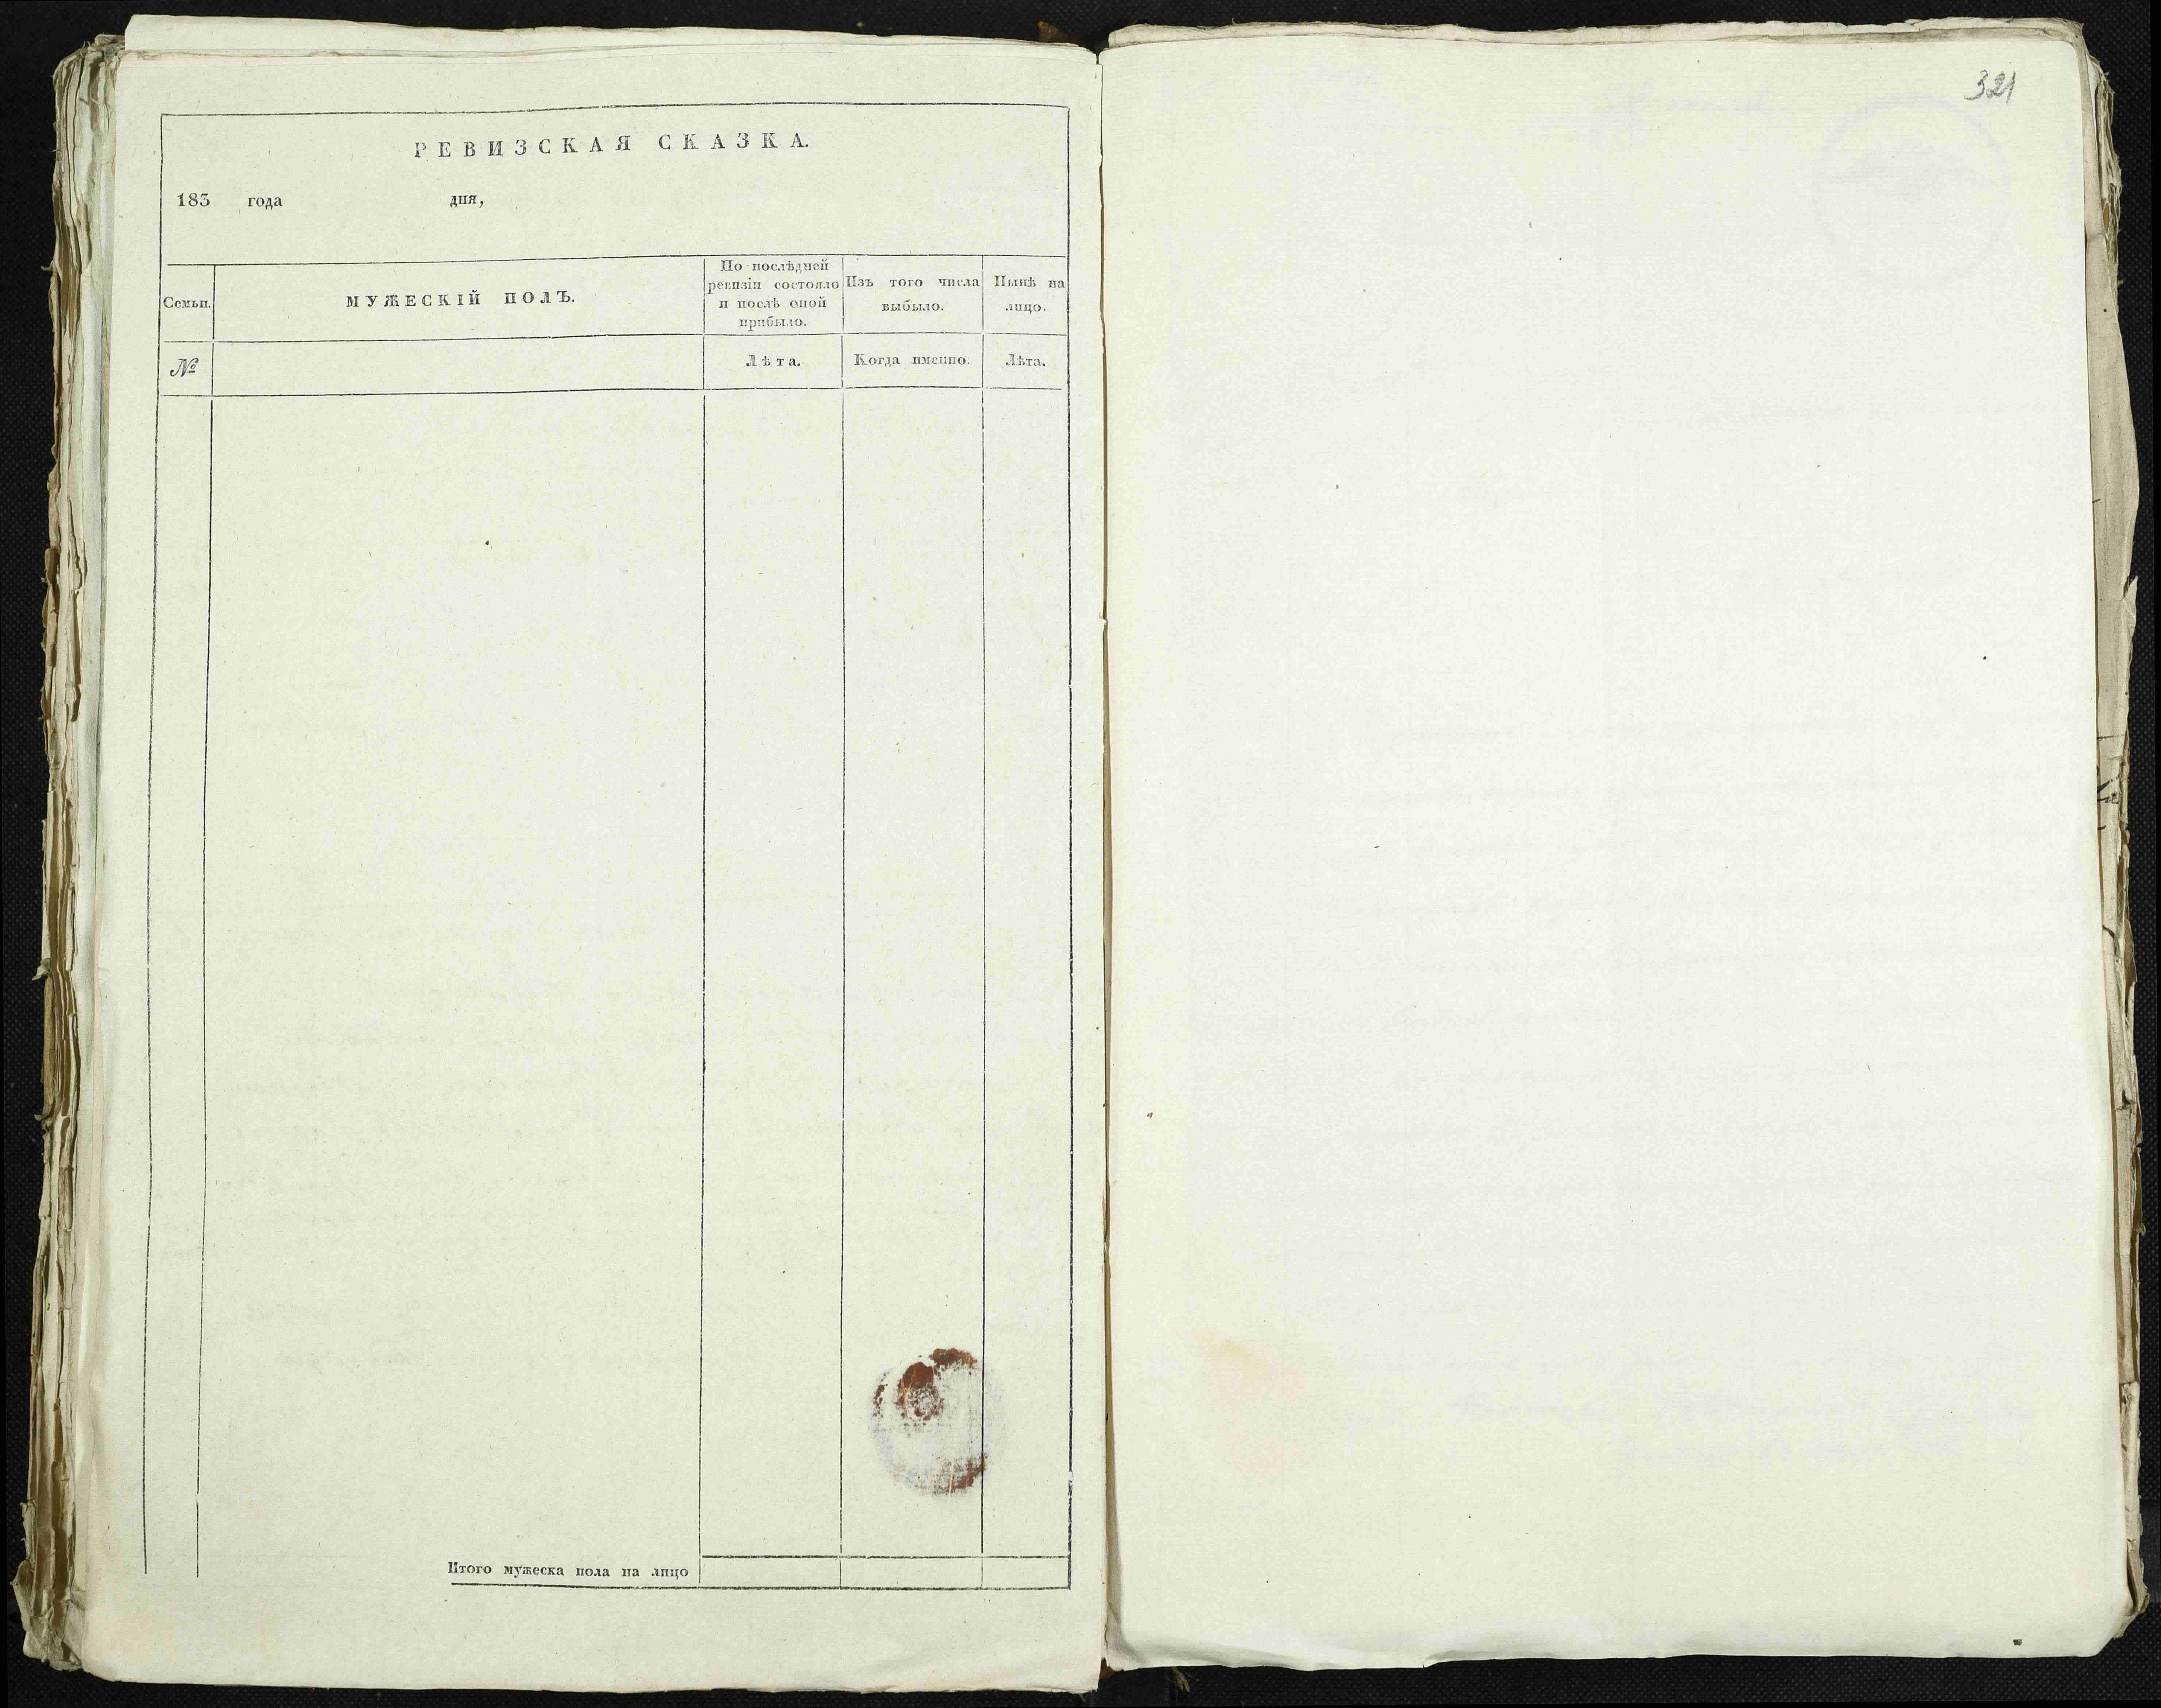 РЕВИЗСКАЯ СКАЗКА.
183 года дня,
Семьи.
МУЖЕСКІЙ ПОЛЪ.
По послѣдней
ревизіи состояло
и послѣ оной
прибыло.
Изъ того числа
выбыло.
Нынѣ на
лицо.
№
Лѣта.
Когда именно.
Лѣта.
Итого мужеска пола на лицо
321